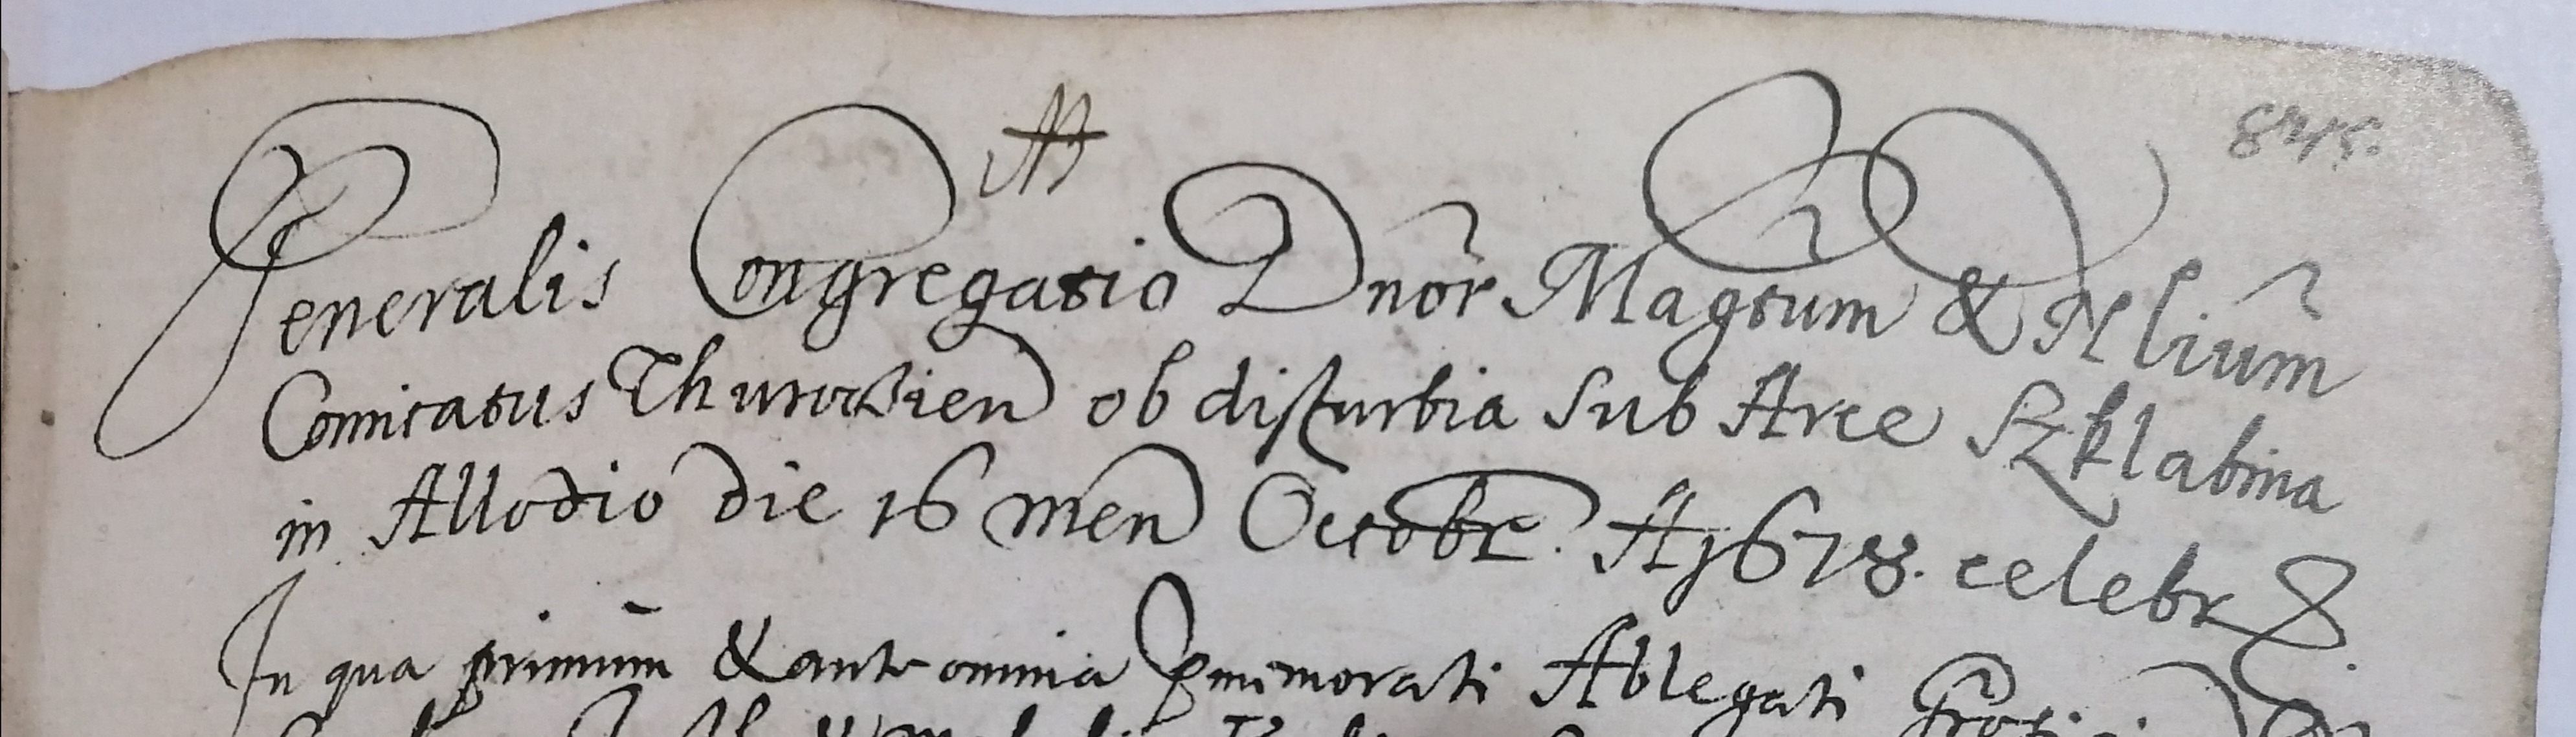 845.
Generalis Congregatio Dnor Magtum & Nlium
Comitatus Thuroczien ob disturbia sub Arce Szklabina
in Allodio die 16 men Octobr. A 1678. celebr
In qua primum & ante omnia Ablegati